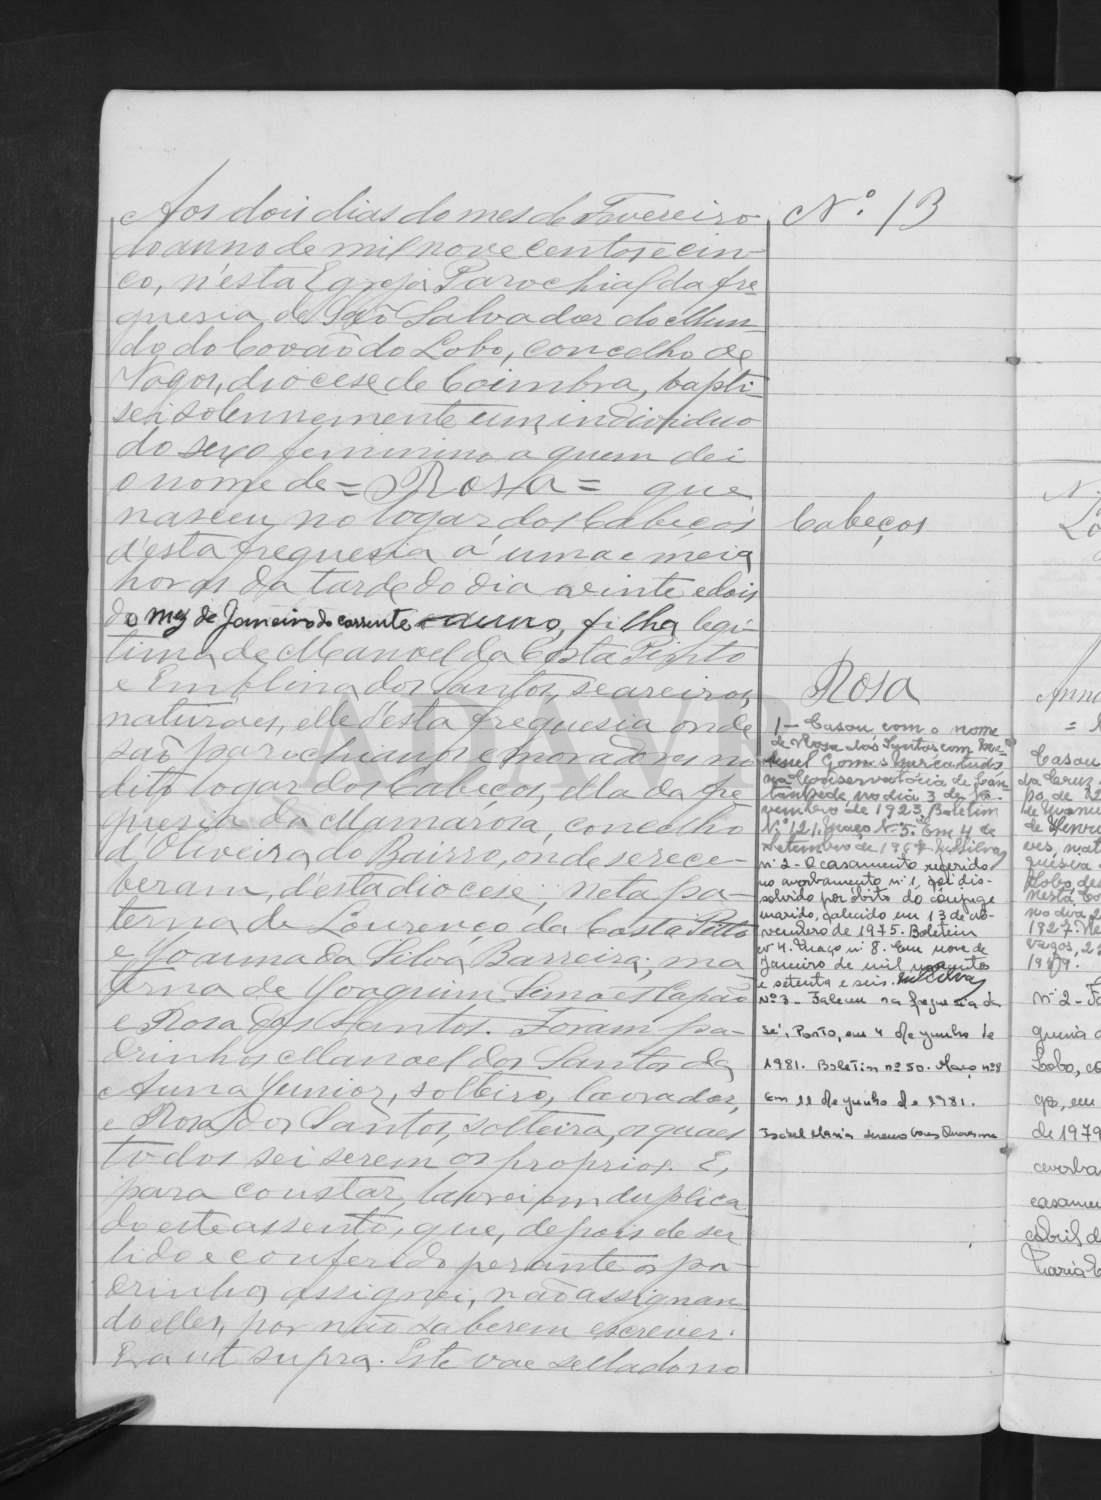 Aos dois dias do mes de Fevereiro
do anno de mil nove centos e cin-
co, n'esta Egreja Parochial da fre-
guesia de São Salvador do Mun-
do do Covão do Lobo, concelho de
Vagos, diocese de Coimbra, bapti-
sei solemnemente um individuo
do sexo feminino a quem dei
o nome de = Rosa = que
nasceu no logar dos Cabeços
d'esta freguesia á uma e meia
horas da tarde do dia vinte e dois
do mez de Janeiro do corrente anno, filha legi-
tima de Manoel da Costa Pinto
e Emblina dos Santos, seareiros,
naturaes, elle d'esta freguesia onde
são parochianos e moradores no
dito logar dos Cabeços, ella da fre
guesia da Mamarosa, concelho
d'Oliveira do Bairro, onde se rece-
beram, d'esta diocese; neta pa-
terna de Lourenço da Costa Pinto
e Joanna da Silva Barreira; ma
terna de Joaquim Simões Capão
e Rosa dos Santos. Foram pa-
drinhos Manoel dos Santos da
Anna Junior, solteiro, lavrador,
e Rosa dos Santos, solteira, os quaes
todos sei serem os proprios. E,
para constar, lavrei em duplica
do este assento, que, depois de ser
lido e conferido perante os pa-
drinhos, assignei, não assignan-
do elles, por não saberem escrever.
Era ut supra. Este vae sellado no
Nº. 13
Cabeços
Rosa
1 - Casou, com o nome
de Rosa dos Santos com Ma-
nuel Gomes Mercanudo
na Conservatória de Can-
tanhede no dia 3 de No-
vembro de 1923. Boletim
Nº 121, Maço Nº 5. Em 4 de
Setembro de 1967.
nº 2 - O casamento referido
no averbamento nº 1, foi dis-
solvido por óbito do cônjuge
marido, falecido em 13 de no-
vembro de 1975. Boletim
nº 4. Maço nº 8. Em nove de
Janeiro de mil novecentos
e setenta e seis.
Nº 3 - Faleceu na freguesia da
Sé, Porto, em 4 de junho de
1981. Boletim nº 50. Maço nº 8
Em 11 de junho de 1981.
Isabel Maria
Casou
da Cruz
1927.
1979.
nº 2 - Fa
Lobo, co
de 1979
casamen
Abril d
Maria
ADAVR